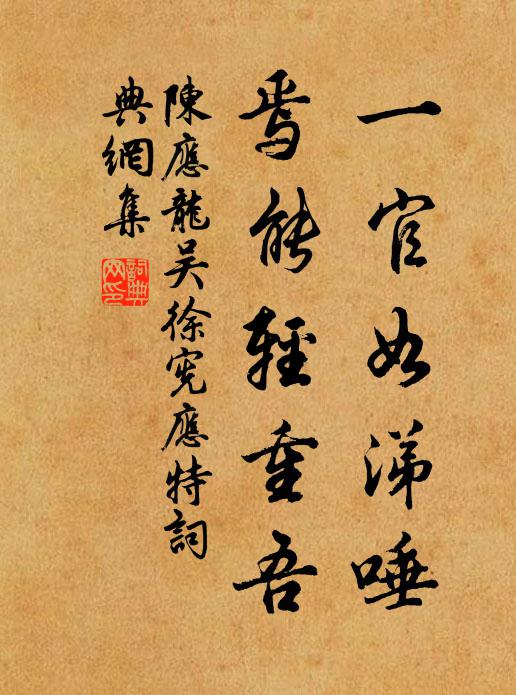 一官如涕唾
焉能輕重吾
陳應龍吴徐宪應特詞
典網集
詞典網印